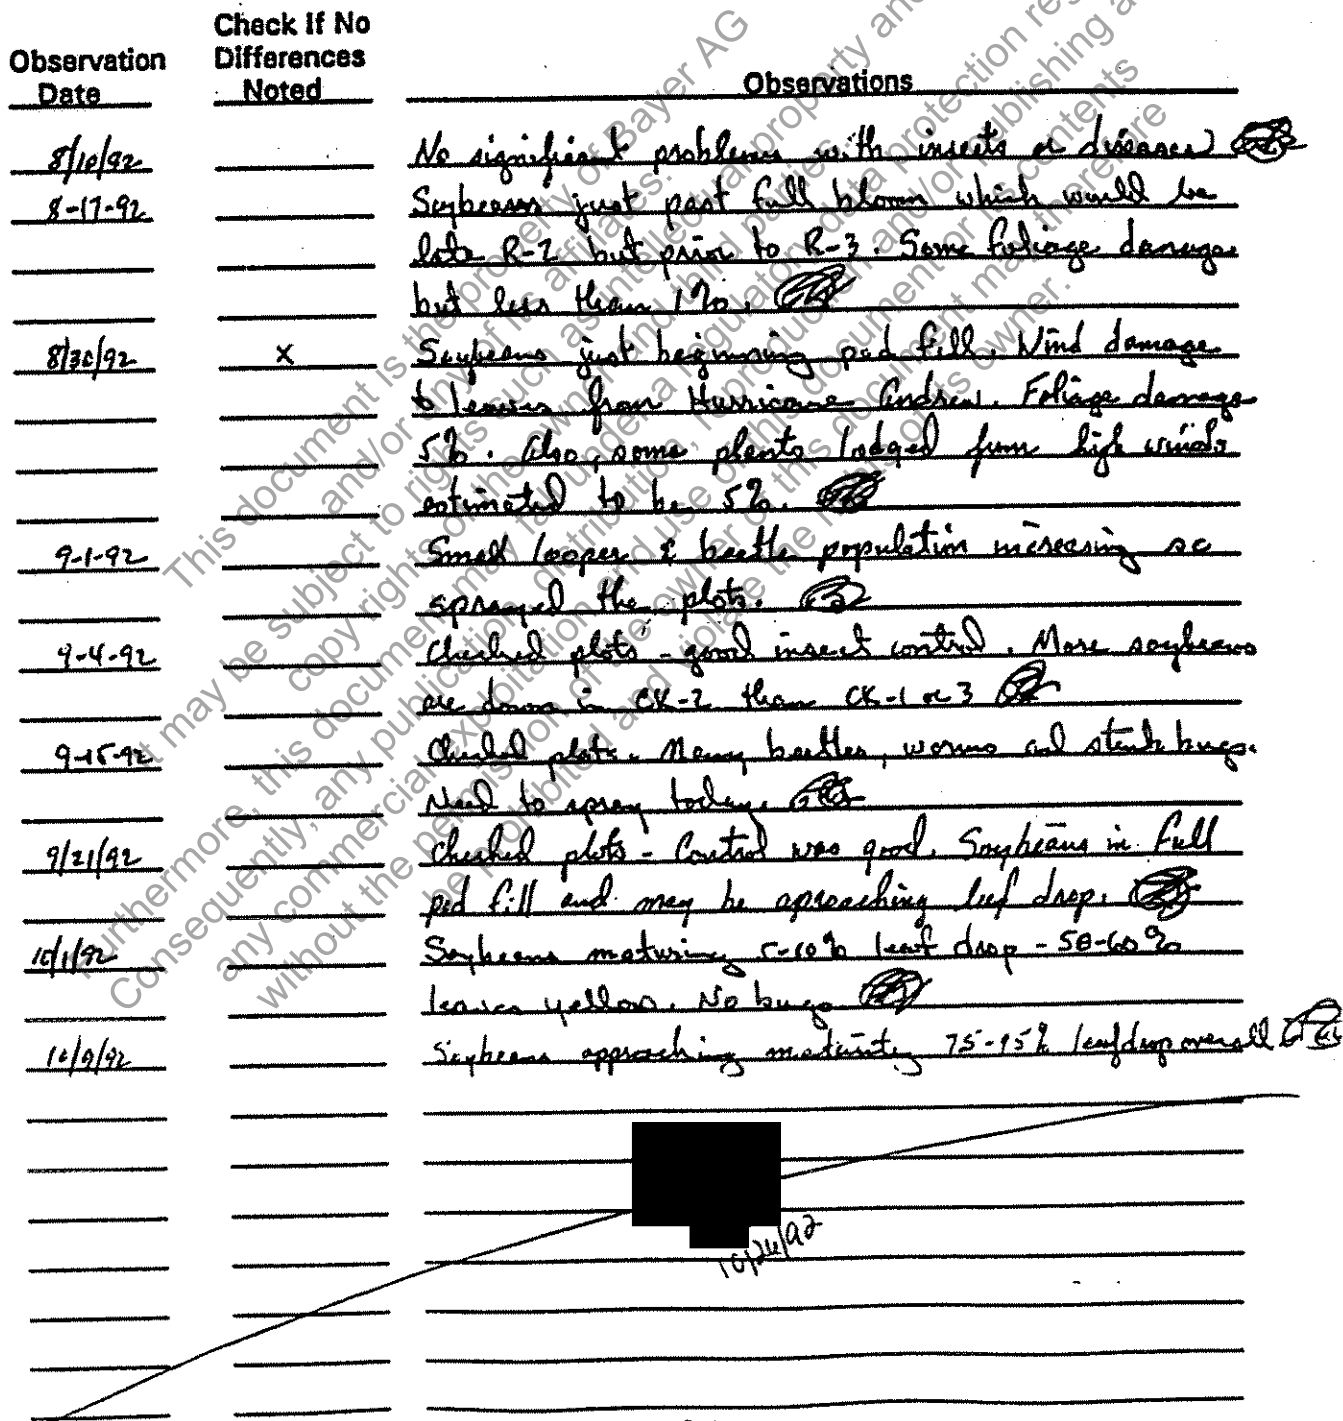 Check If No
Observation Differences
Date Noted Observations
8/10/92 No significant problems with insects or diseases
8-17-92 Soybeans just past full bloom which would be
late R-2 but prior to R-3. Some foliage damage
but less than 1%.
8/30/92 X Soybeans just beginning pod fill. Wind damage
to leaves from Hurricane Andrew. Foliage damage
5%. Also, some plants lodged from high winds
estimated to be 5%.
9-1-92 Small looper & beetle population increasing so
sprayed the plots.
9-4-92 Checked plots - good insect control. More soybeans
are down in CK-2 than CK-1 or 3
9-15-92 Checked plots. Many beetles, worms and stink bugs.
Need to spray today.
9/21/92 Checked plots - Control was good. Soybeans in full
pod fill and may be aproaching leaf drop.
10/1/92 Soybeans maturing 5-10% leaf drop - 50-60%
leaves yellow. No bugs
10/9/92 Soybeans approaching maturity 75-95% leaf drop overall
10/26/92
This document is the property of Bayer AG
and/or any of its affiliates.
It may be subject to rights such as intellectual property and
copy rights of the owner and third parties.
Furthermore, this document may fall under a regulatory data protection reg
Consequently, any publication, distribution, reproduction and/or publishing a
any commercial exploitation and use of this document or its contents
without the permission of the owner of this document may therefore
be prohibited and violate the rights of its owner.